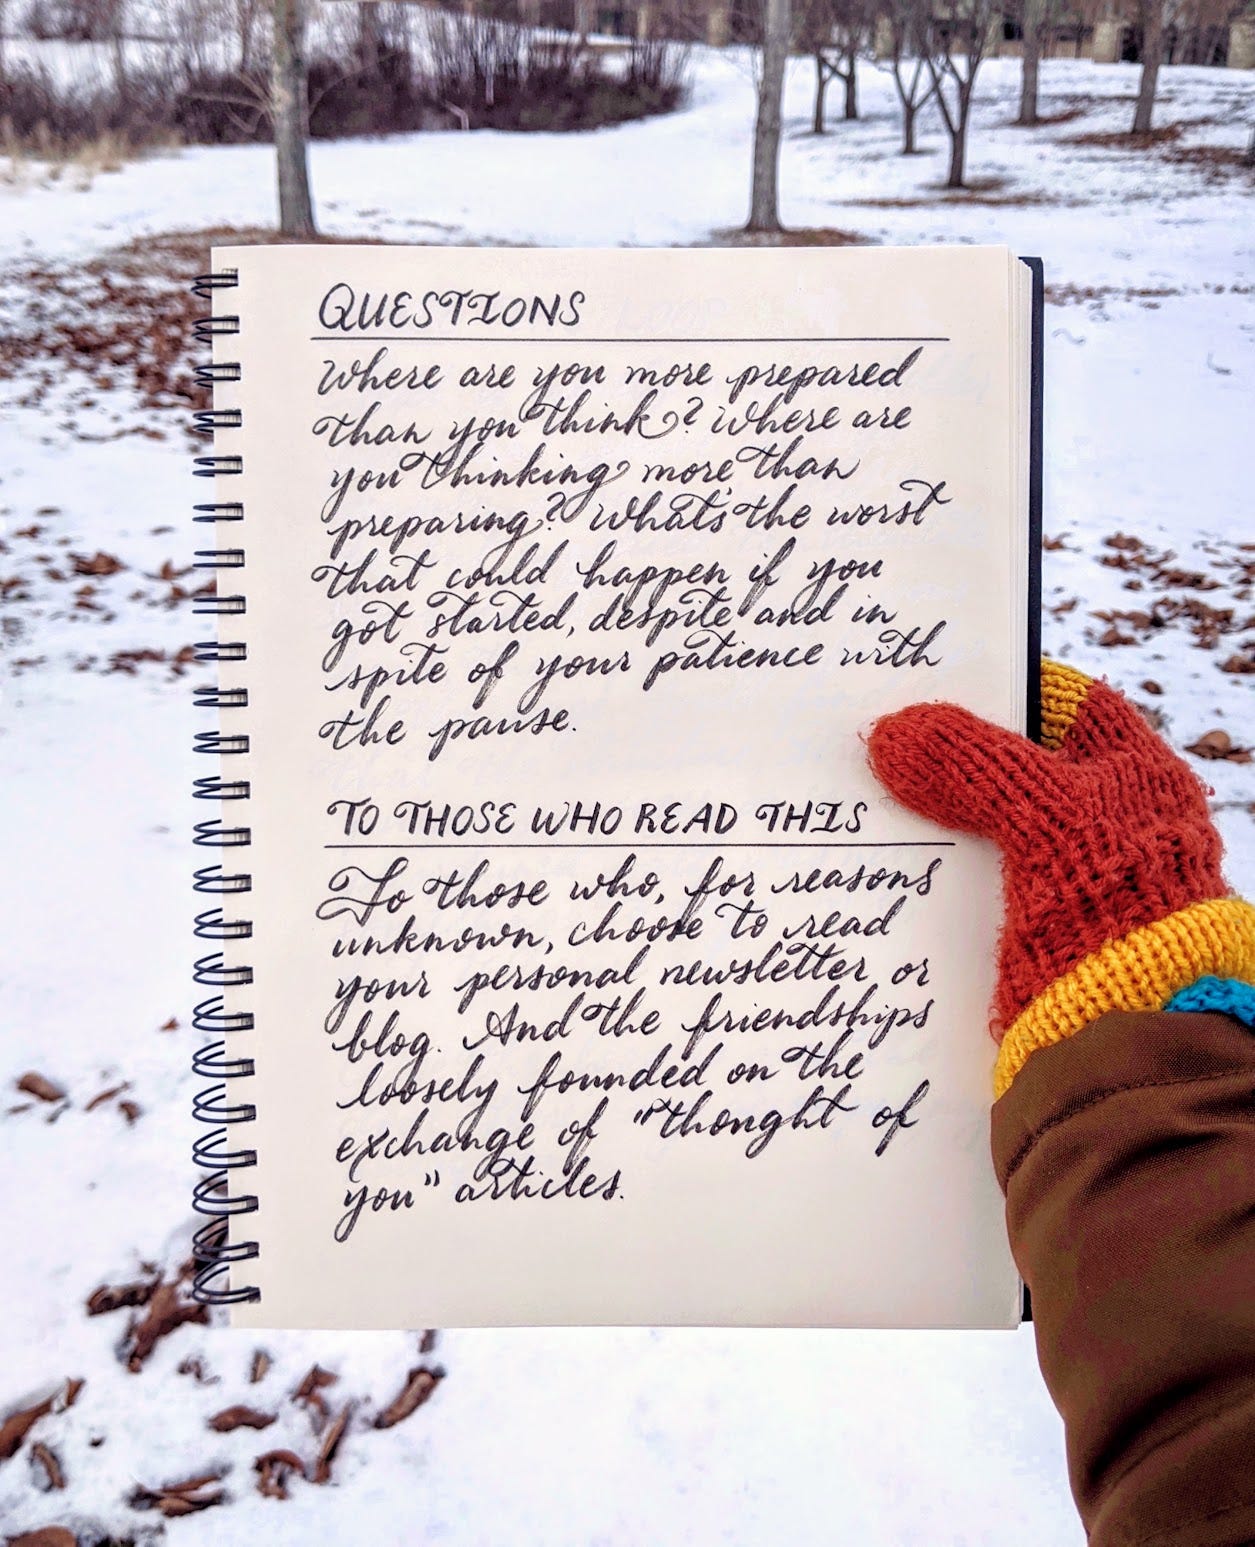 QUESTIONS
Where are you more prepared
than you think? Where are
you thinking more than
preparing? What's the worst
that could happen if you
got started, despite and in
spite of your patience with
the pause.
TO THOSE WHO READ THIS
To those who, for reasons
unknown, choose to read
your personal newsletter or
blog. And the friendships
loosely founded on the
exchange of "thought of
you" articles.